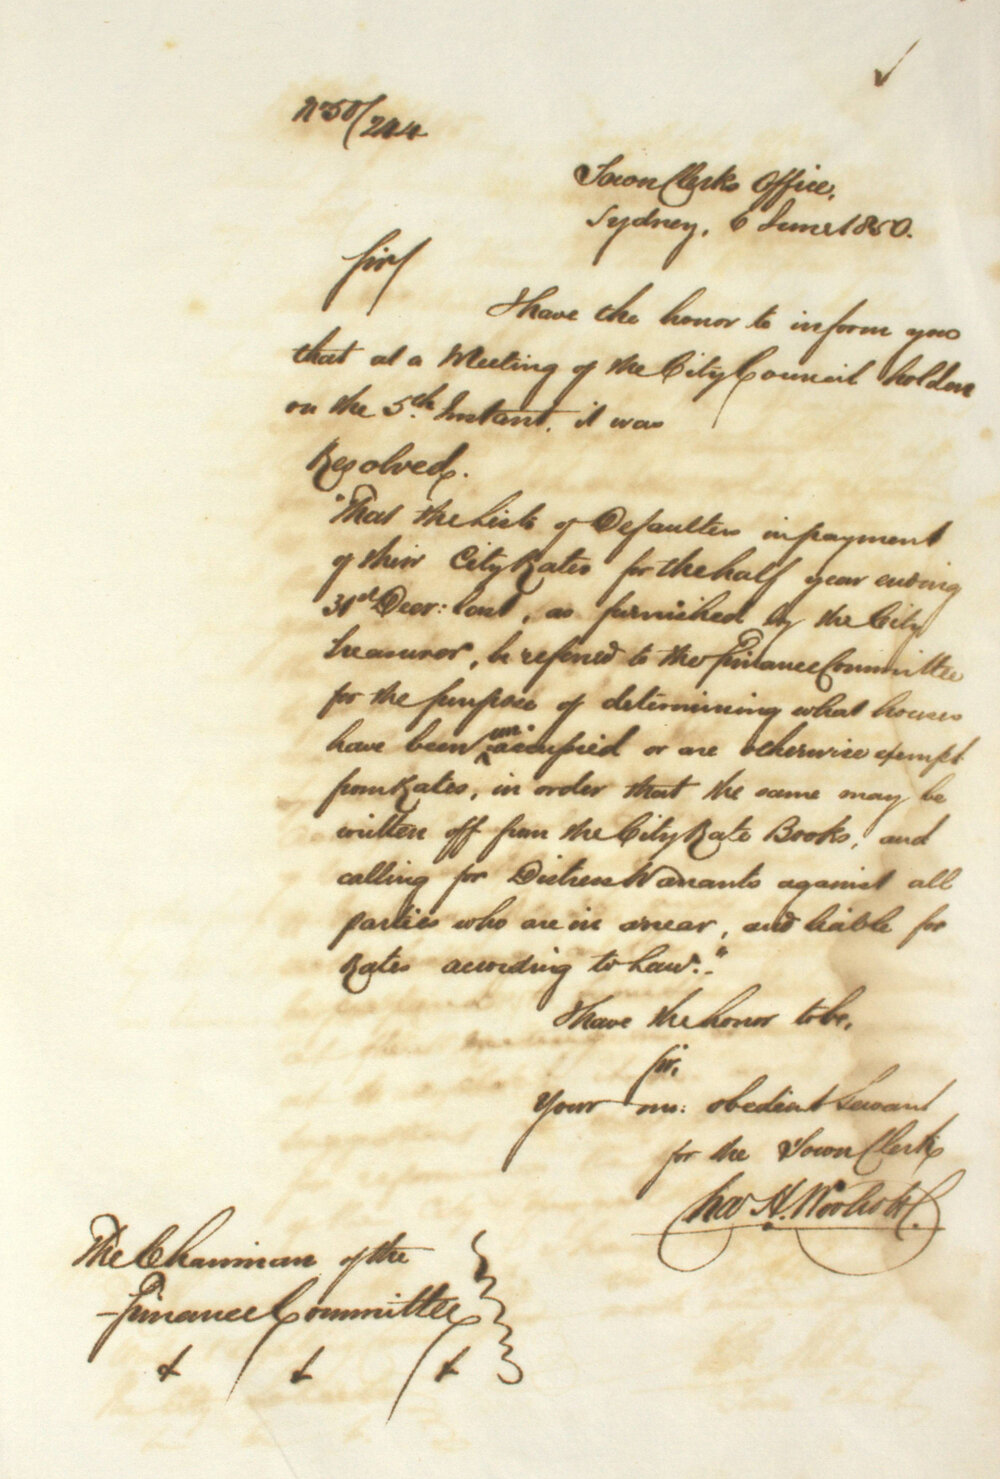 No 50/244
Town Clerks Office,
Sydney, 6 June 1850.
Sir/
I have the honor to inform you
that at a Meeting of the City Council holden
on the 5th. Instant. it was
Resolved.
"That the Lists of Defaulters in payment
of their City Rates for the half year ending
31st Decr: last, as furnished by the City
Treasurer, be referred to the Finance Committee
for the purpose of determining what houses
have been unoccupied or are otherwise exempt
from Rates, in order that the same may be
written off from the City Rate Books, and
calling for Distress Warrants against all
parties who are in arrear, and liable for
Rates according to Law."
I have the honor to be,
Sir,
Your mo: obedient Servant
for the Town Clerk
Chas H. Woolcott
The Chairman of the
Finance Committee
& & &